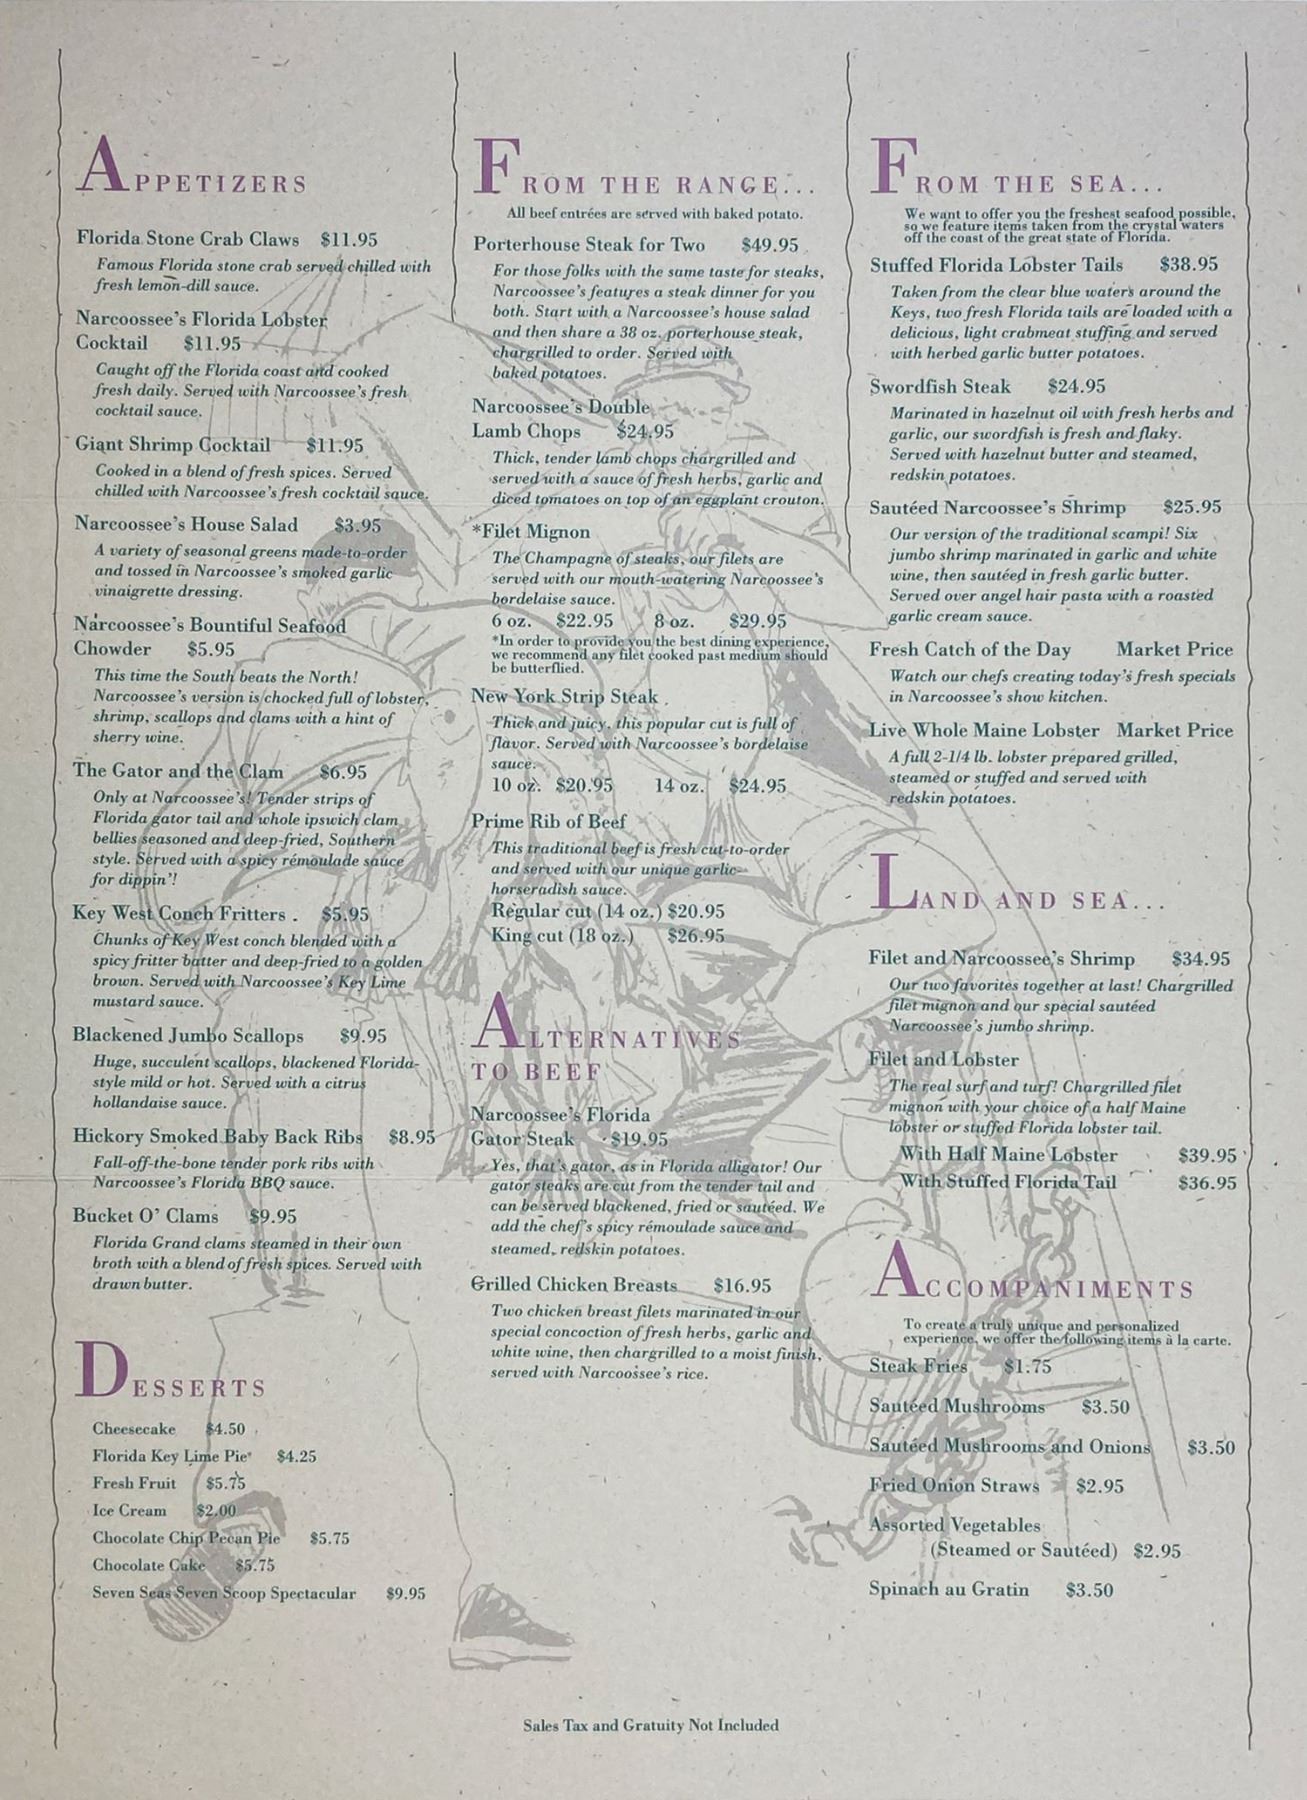 APPETIZERS
Florida Stone Crab Claws $11.95
Famous Florida stone crab served chilled with
fresh lemon-dill sauce.
Narcoossee's Florida Lobster
Cocktail $11.95
Caught off the Florida coast and cooked
fresh daily. Served with Narcoossee's fresh
cocktail sauce.
Giant Shrimp Cocktail $11.95
Cooked in a blend of fresh spices. Served
chilled with Narcoossee's fresh cocktail sauce.
Narcoossee's House Salad $3.95
A variety of seasonal greens made-to-order
and tossed in Narcoossee's smoked garlic
vinaigrette dressing.
Narcoossee's Bountiful Seafood
Chowder $5.95
This time the South beats the North!
Narcoossee's version is chocked full of lobster,
shrimp, scallops and clams with a hint of
sherry wine.
The Gator and the Clam $6.95
Only at Narcoossee's! Tender strips of
Florida gator tail and whole ipswich clam
bellies seasoned and deep-fried, Southern
style. Served with a spicy rémoulade sauce
for dippin'!
Key West Conch Fritters $5.95
Chunks of Key West conch blended with a
spicy fritter batter and deep-fried to a golden
brown. Served with Narcoossee's Key Lime
mustard sauce.
Blackened Jumbo Scallops $9.95
Huge, succulent scallops, blackened Florida-
style mild or hot. Served with a citrus
hollandaise sauce.
Hickory Smoked Baby Back Ribs $8.95
Fall-off-the-bone tender pork ribs with
Narcoossee's Florida BBQ sauce.
Bucket O' Clams $9.95
Florida Grand clams steamed in their own
broth with a blend of fresh spices. Served with
drawn butter.
DESSERTS
Cheesecake $4.50
Florida Key Lime Pie* $4.25
Fresh Fruit $5.75
Ice Cream $2.00
Chocolate Chip Pecan Pie $5.75
Chocolate Cake $5.75
Seven Seas Seven Scoop Spectacular $9.95
FROM THE RANGE...
All beef entrées are served with baked potato.
Porterhouse Steak for Two $49.95
For those folks with the same taste for steaks,
Narcoossee's features a steak dinner for you
both. Start with a Narcoossee's house salad
and then share a 38 oz. porterhouse steak,
chargrilled to order. Served with
baked potatoes.
Narcoossee's Double
Lamb Chops $24.95
Thick, tender lamb chops chargrilled and
served with a sauce of fresh herbs, garlic and
diced tomatoes on top of an eggplant crouton.
*Filet Mignon
The Champagne of steaks, our filets are
served with our mouth-watering Narcoossee's
bordelaise sauce.
6 oz. $22.95 8 oz. $29.95
*In order to provide you the best dining experience,
we recommend any filet cooked past medium should
be butterflied.
New York Strip Steak
Thick and juicy, this popular cut is full of
flavor. Served with Narcoossee's bordelaise
sauce.
10 oz. $20.95 14 oz. $24.95
Prime Rib of Beef
This traditional beef is fresh cut-to-order
and served with our unique garlic-
horseradish sauce.
Regular cut (14 oz.) $20.95
King cut (18 oz.) $26.95
ALTERNATIVES
TO BEEF
Narcoossee's Florida
Gator Steak $19.95
Yes, that's gator, as in Florida alligator! Our
gator steaks are cut from the tender tail and
can be served blackened, fried or sautéed. We
add the chef's spicy rémoulade sauce and
steamed, redskin potatoes.
Grilled Chicken Breasts $16.95
Two chicken breast filets marinated in our
special concoction of fresh herbs, garlic and
white wine, then chargrilled to a moist finish,
served with Narcoossee's rice.
FROM THE SEA...
We want to offer you the freshest seafood possible,
so we feature items taken from the crystal waters
off the coast of the great state of Florida.
Stuffed Florida Lobster Tails $38.95
Taken from the clear blue waters around the
Keys, two fresh Florida tails are loaded with a
delicious, light crabmeat stuffing and served
with herbed garlic butter potatoes.
Swordfish Steak $24.95
Marinated in hazelnut oil with fresh herbs and
garlic, our swordfish is fresh and flaky.
Served with hazelnut butter and steamed,
redskin potatoes.
Sautéed Narcoossee's Shrimp $25.95
Our version of the traditional scampi! Six
jumbo shrimp marinated in garlic and white
wine, then sautéed in fresh garlic butter.
Served over angel hair pasta with a roasted
garlic cream sauce.
Fresh Catch of the Day Market Price
Watch our chefs creating today's fresh specials
in Narcoossee's show kitchen.
Live Whole Maine Lobster Market Price
A full 2-1/4 lb. lobster prepared grilled,
steamed or stuffed and served with
redskin potatoes.
LAND AND SEA...
Filet and Narcoossee's Shrimp $34.95
Our two favorites together at last! Chargrilled
filet mignon and our special sautéed
Narcoossee's jumbo shrimp.
Filet and Lobster
The real surf and turf! Chargrilled filet
mignon with your choice of a half Maine
lobster or stuffed Florida lobster tail.
With Half Maine Lobster $39.95
With Stuffed Florida Tail $36.95
ACCOMPANIMENTS
To create a truly unique and personalized
experience, we offer the following items à la carte.
Steak Fries $1.75
Sautéed Mushrooms $3.50
Sautéed Mushrooms and Onions $3.50
Fried Onion Straws $2.95
Assorted Vegetables
(Steamed or Sautéed) $2.95
Spinach au Gratin $3.50
Sales Tax and Gratuity Not Included